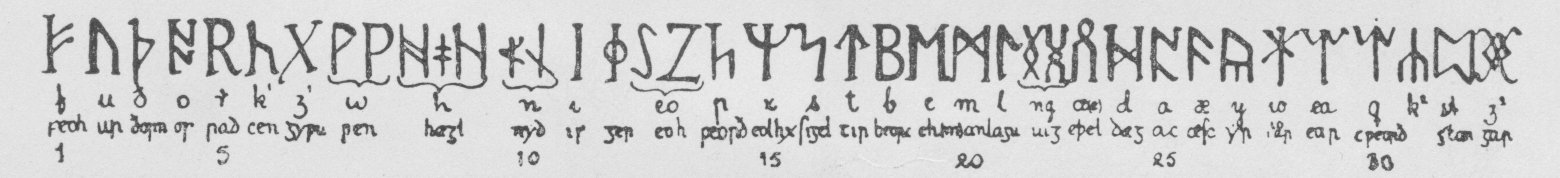 ᚠ ᚢ ᚦ ᚩ ᚱ ᚳ ᚷ ᚹ ᚹ ᚻ ᚼ ᚺ ᚾ ᛁ ᛄ ᛇ ᛈ ᛉ ᛋ ᛏ ᛒ ᛖ ᛗ ᛚ ᛝ ᛟ ᛞ ᚪ ᚫ ᚣ ᛡ ᛠ ᛢ ᛣ ᛥ ᚸ
f u ð o r k' ȝ' w h n i eo p x s t b e m l ng œ(e) d a æ y io ea q k² st ȝ²
feoh ur ðorn os rad cen gyfu ƿen hægl nyd is ger eoh peorð eolhx sigel tir beorc eh man lagu ing eþel dæg ac æsc ýr íor ear cƿeorð stan gar
1 5 10 15 20 25 30